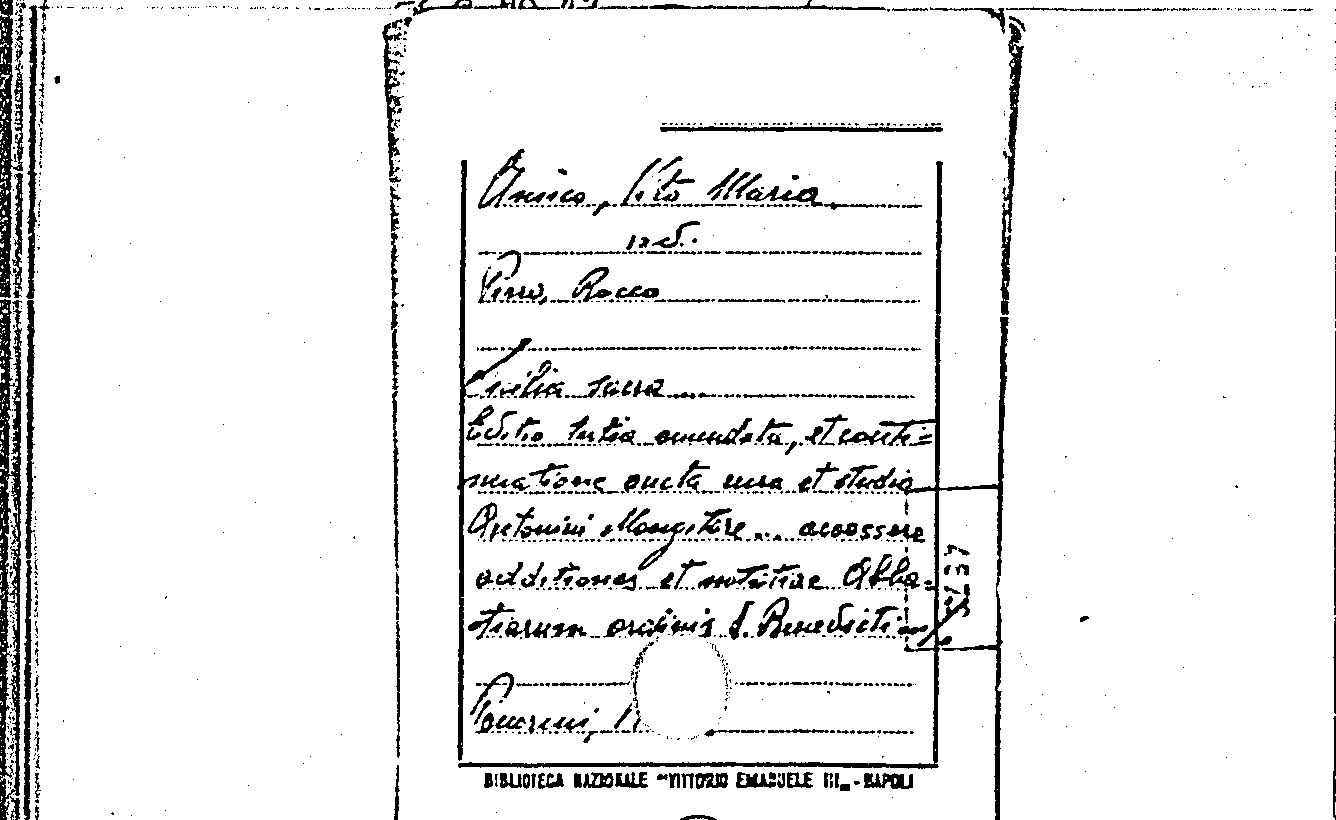 Amico, Vito Maria.
ved.
Pirro, Rocco
Sicilia sacra ...
Editio tertia emendata, et conti=
nuatione aucta cura et studio
Antonini Mongitore ... accessere
additiones et notitiae Abba=
tiarum ordinis S. Benedicti
Panormi,
BIBLIOTECA NAZIONALE "VITTORIO EMANUELE III„ - NAPOLI